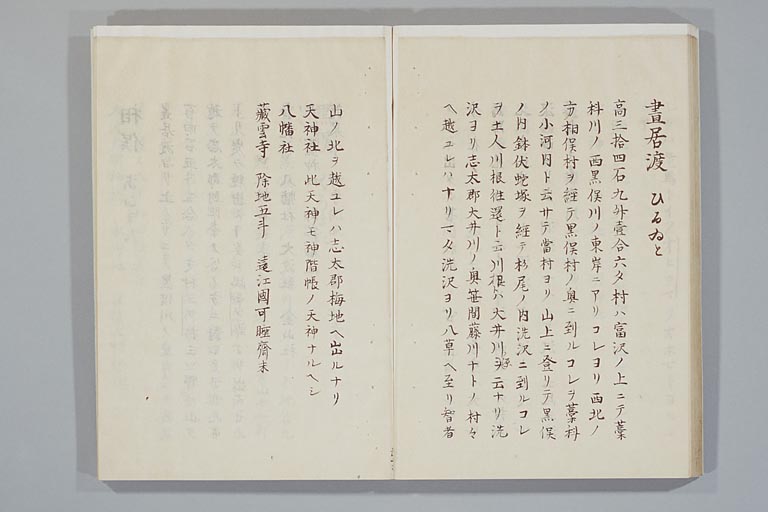 晝居渡 ひるゐと
高三拾四石九舛壹合六夕村ハ富沢ノ上ニテ藁
科川ノ西黒俣川ノ東岸ニアリコレヨリ西北ノ
方相俣村ヲ經テ黒俣村ノ奥ニ到ルコレヲ藁科
ノ小河内ト云サテ當村ヨリ山上ニ登リテ黒俣
ノ内鉢伏蛇塚ヲ經テ杉尾ノ内洗沢ニ到ルコレ
ヲ土人川根徃還ト云川根ハ大井川ヲ云ナリ洗
沢ヨリ志太郡大井川ノ奥笹間藤川ナトノ村々
ヘ越ユレハナリマタ洗沢ヨリ八草ヘ至リ智者
山ノ北ヲ越ユレハ志太郡梅地ヘ出ルナリ
天神社 此天神モ神階帳ノ天神ナルヘシ
八幡社
藏雲寺 除地五斗 遠江國可睡齋末